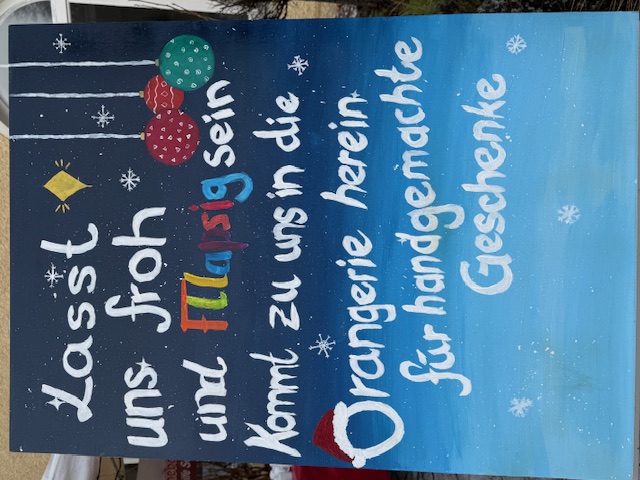 Lasst
uns froh
und Fllapsig sein
Kommt zu uns in die
Orangerie herein
für handgemachte
Geschenke